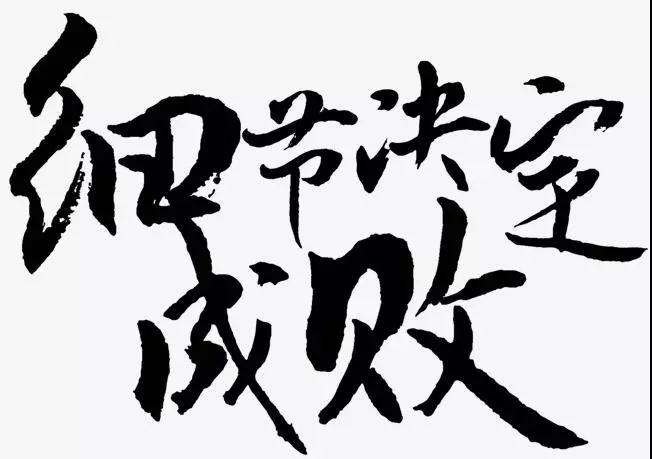 细节决定
成败